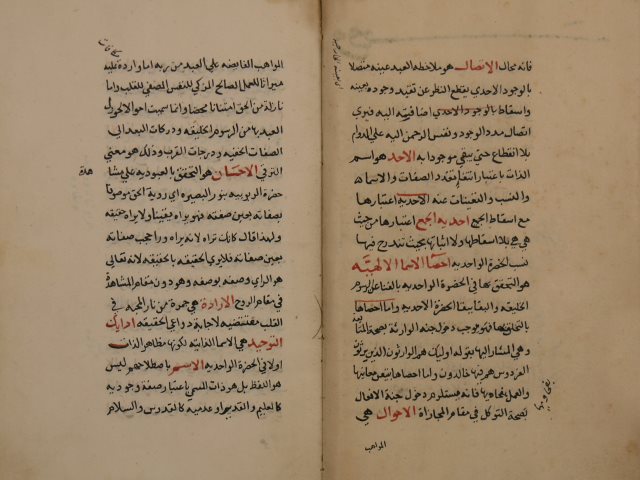 فانه محال الاتصال هو ملاحظه العبد عينه متصلا
بالوجود الاحدي بقطع النظر عن تقيد وجوده بعينه
واسقاط اضافته اليه فيرى
اتصال مدد الوجود ونفس الرحمن اليه علي الدوام
بلا انقطاع حتي يبقي موجودا به الاحد هو اسم
الذات باعتبار انتفا تعدد الصفات والاسماء
والنسب والتعينات عنه الاحديه اعتبارها
مع اسقاط الجميع احديه الجمع اعتبارها من حيث
هي هي بلا اسقاطها ولا اثباتها بحيث تندرج فيها
نسب الحضرة الواحديه احصا الاسما الالهيّه
هو التحقق بها في الحضرة الواحديه بالفنا عن الرسوم
الخلقيه والبقا ببقا الحضرة الاحديه واما احصاها
بالتخلق بها فهو يوجب دخول جنه الوراثة بصحة المتابعه
وهي المشار اليها بقوله اوليك هم الوارثون الذين يرثون
الفردوس هم فيها خالدون واما احصاها بتيقن معانيها
والعمل بفحاويها فانه يستلزم دخول جنة الافعال
بصحة التوكل في مقام المجازاة الاحوال هي
المواهب
المواهب الفايضه علي العبد من ربه اما واردة عليه
ميراثا للعمل الصالح المزكي للنفس المصفي للقلب واما
نازلة من الحق امتنانا محضا وانما سميت احوالا لحول
العبد بها من الرسوم الخلقيه ودركات البعد الي
الصفات الحقيه ودرجات القرب وذلك هو معني
الترقي الاحسان هو التحقق بالعبوديه علي مشا
هدة
حضرة الربوبيه بنور البصيره اي رويه الحق موصوفا
بصفاته بعين صفته فهو يراه يقينا ولا يراه حقيقه
ولهذا قال كانك تراه لانه يراه ورا حجب صفاته
بعين صفاته فلا يري الحقيقه بالحقيقه لانه تعالي
هو الراي وصفه بوصفه وهو دون مقام المشاهدة
في مقام الروح الارادة هي جمرة من نار المحبه في
القلب مقتضيه لاجابة دواعي الحقيقه ارايك
التوحيد هي الاسما الذاتيه لكونها مظاهر الذات
اولا في الحضرة الواحديه الاسم باصطلاحهم ليس
هو اللفظ بل هو ذات المسمي باعتبار صفة وجوديه
كالعليم والقدير او عدميه كالقدوس والسلام